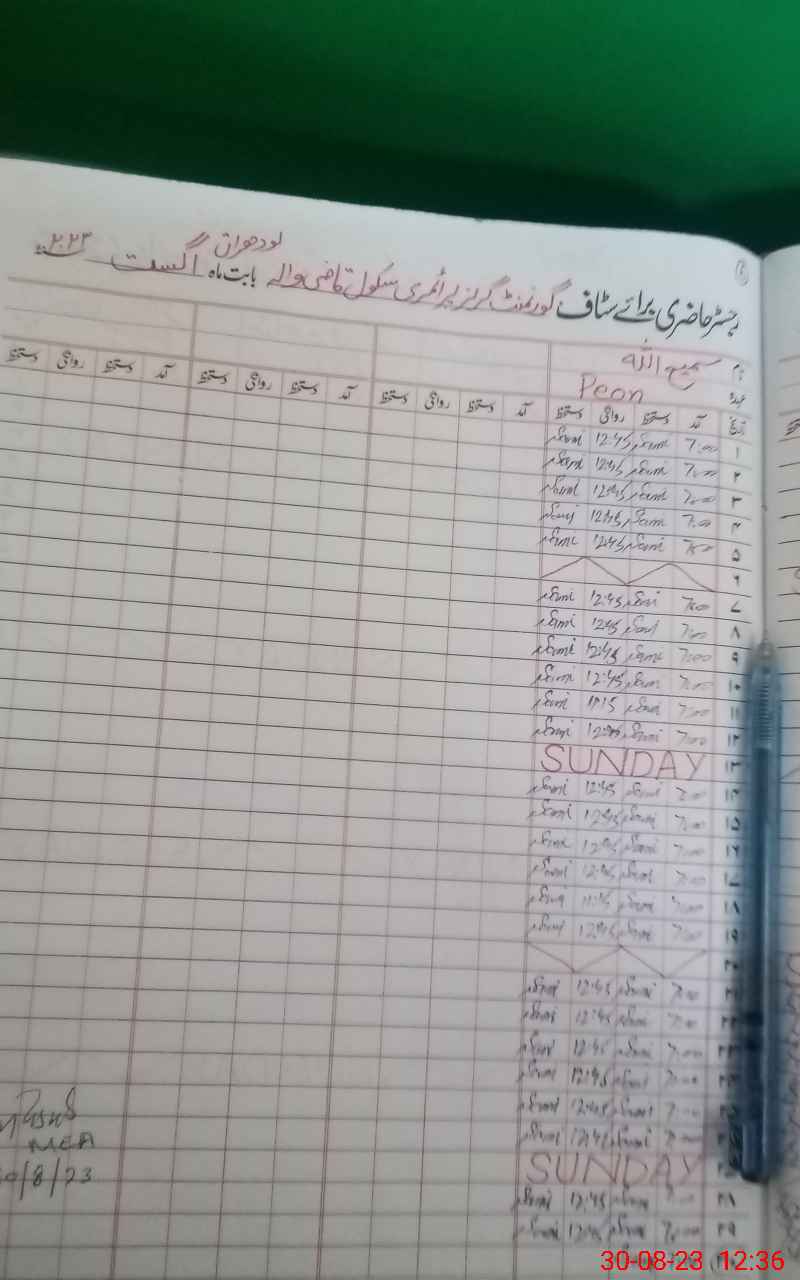 رجسٹر حاضری برائے سٹاف گورنمنٹ گرلز پرائمری سکول قاضی والہ لودھراں بابت ماہ اگست ۲۰۲۳
نام سمیع اللہ
عہدہ Peon
تاریخ آمد دستخط روانگی دستخط آمد دستخط روانگی دستخط آمد دستخط روانگی دستخط آمد دستخط روانگی دستخط
۱ 7:00 Sami 12:45 Sami
۲ 7:00 Sami 12:45 Sami
۳ 7:00 Sami 12:45 Sami
۴ 7:00 Sami 12:45 Sami
۵ 7:00 Sami 12:45 Sami
۶
۷ 7:00 Sami 12:45 Sami
۸ 7:00 Sami 12:45 Sami
۹ 7:00 Sami 12:45 Sami
۱۰ 7:00 Sami 12:45 Sami
۱۱ 7:00 Sami 11:15 Sami
۱۲ 7:00 Sami 12:45 Sami
۱۳ SUNDAY
۱۴ 7:00 Sami 12:45 Sami
۱۵ 7:00 Sami 12:45 Sami
۱۶ 7:00 Sami 12:45 Sami
۱۷ 7:00 Sami 12:45 Sami
۱۸ 7:00 Sami 11:15 Sami
۱۹ 7:00 Sami 12:45 Sami
۲۰
۲۱ 7:00 Sami 12:45 Sami
۲۲ 7:00 Sami 12:45 Sami
۲۳ 7:00 Sami 12:45 Sami
۲۴ 7:00 Sami 12:45 Sami
۲۵ 7:00 Sami 12:45 Sami
7:00 Sami 12:45 Sami
SUNDAY
۲۸ 7:00 Sami 12:45 Sami
۲۹ 7:00 Sami 12:45 Sami
۳۰
MEA
/8/23
30-08-23 12:36